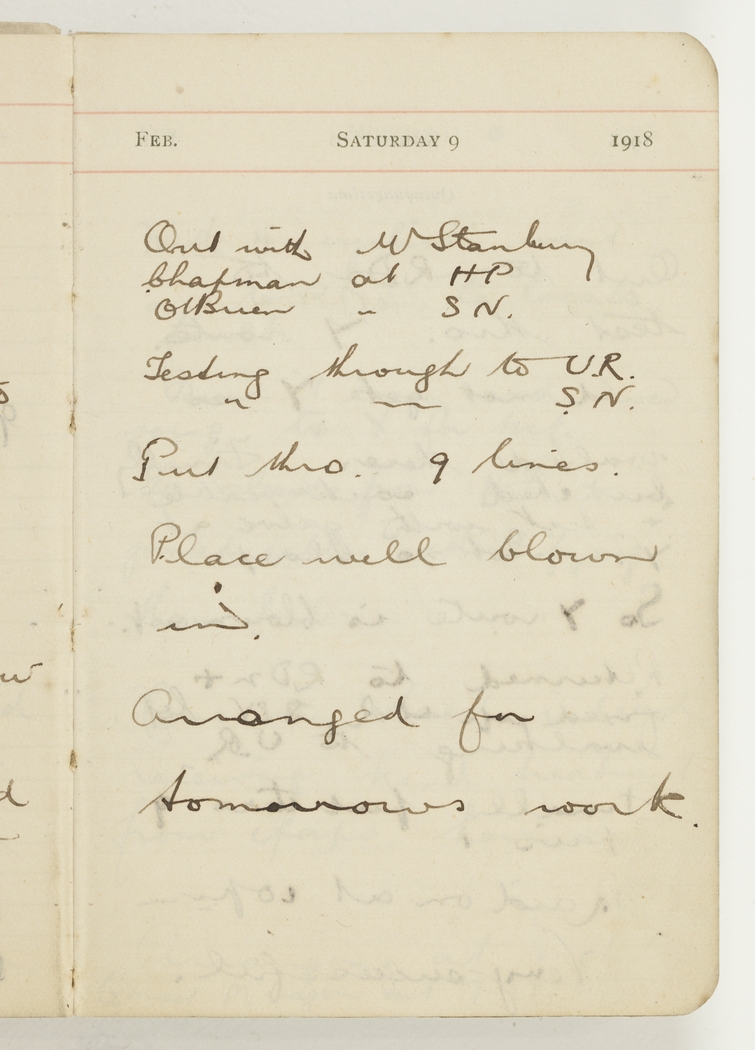 FEB. SATURDAY 9 1918
Out with Mr Stanbury
Chapman at HP
O'Brien " S N.
Testing through to U.R.
" — S. N.
Put thro. 9 lines.
Place well blown
in.
Arranged for
tomorrows work.